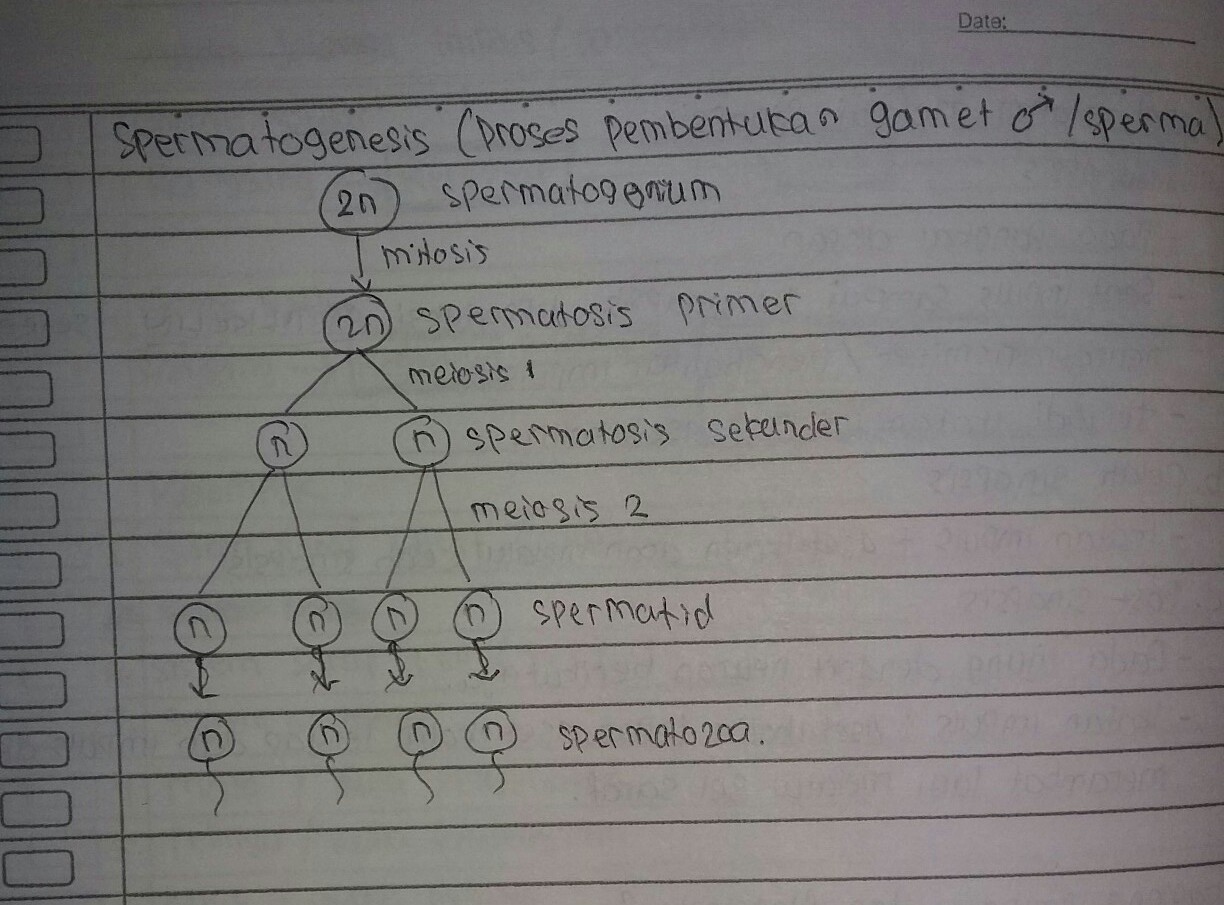 Date:
Spermatogenesis (Proses pembentukan gamet ♂ / sperma)
2n spermatogonium
mitosis
2n spermatosis primer
meiosis 1
n n spermatosis sekunder
meiosis 2
n n n n spermatid
n n n n spermatozoa.